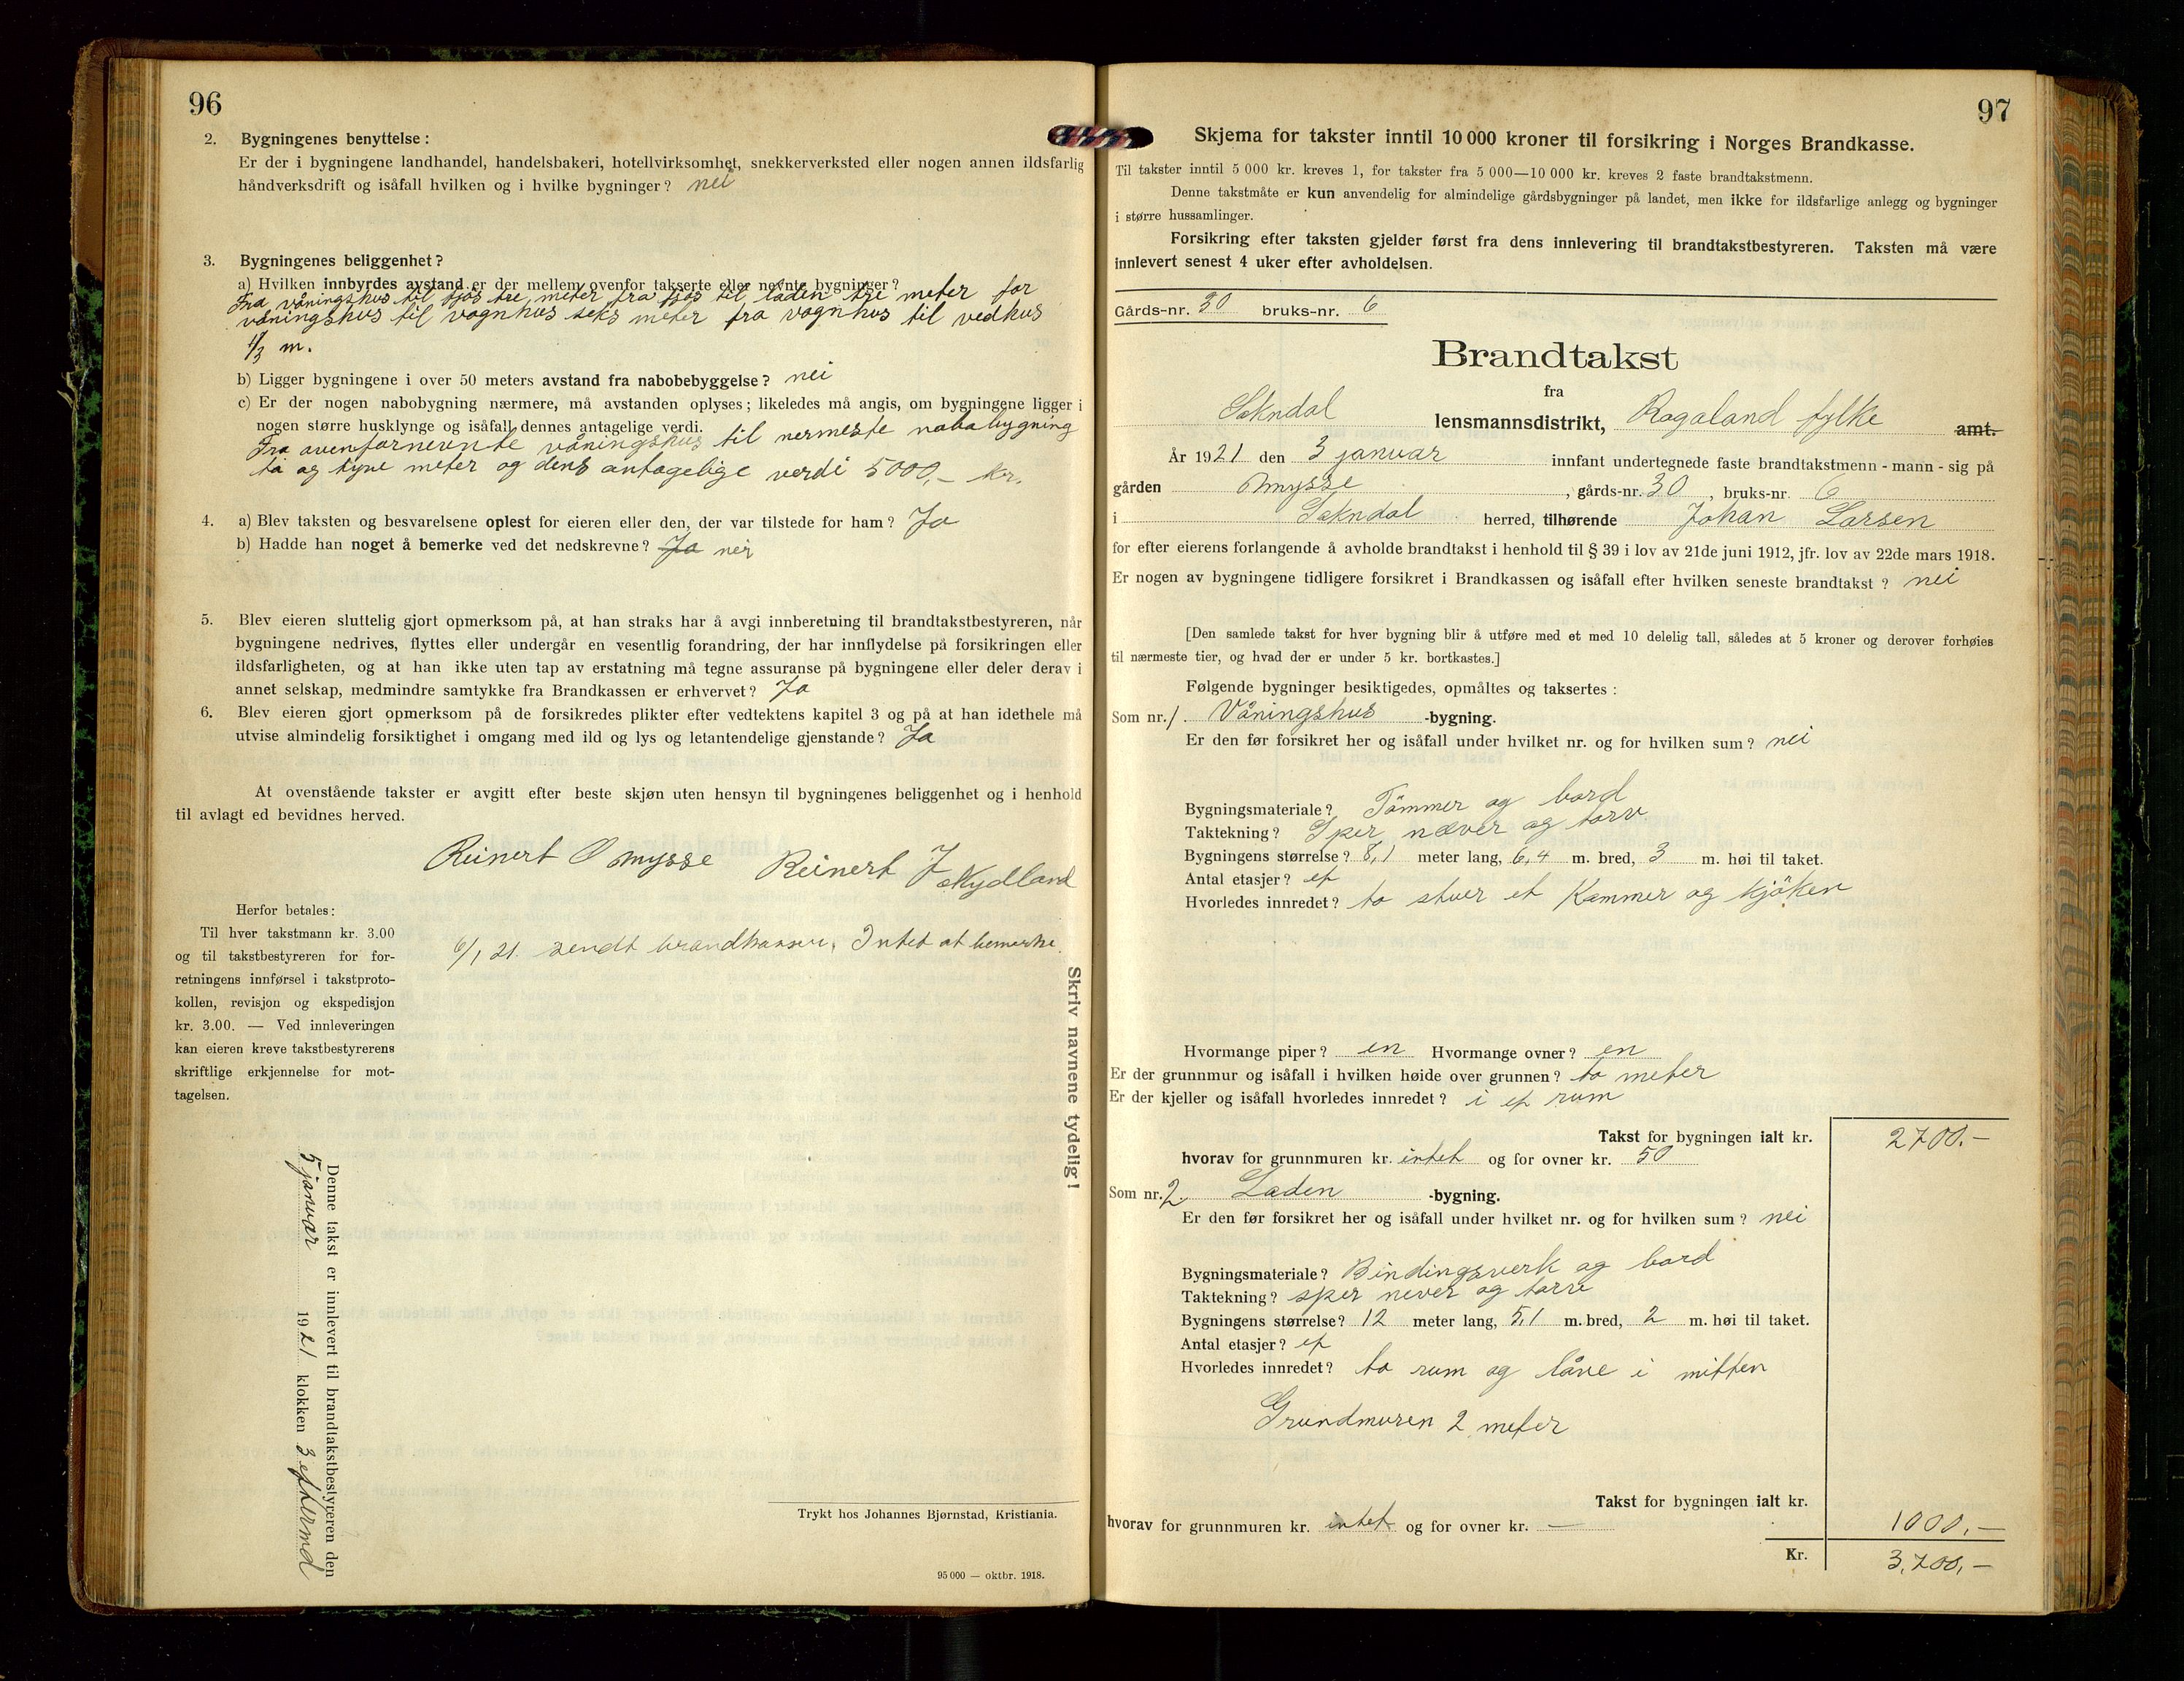 96
2. Bygningenes benyttelse:
Er der i bygningene landhandel, handelsbakeri, hotellvirksomhet, snekkerverksted eller nogen annen ildsfarlig
håndverksdrift og isåfall hvilken og i hvilke bygninger? nei
3. Bygningenes beliggenhet?
a) Hvilken innbyrdes avstand er der mellem ovenfor takserte eller nevnte bygninger?
Fra våningshus til fjøs tre meter fra fjøs til laden tre meter for
våningshus til vognhus seks meter fra vognhus til vedhus
1/3 m.
b) Ligger bygningene i over 50 meters avstand fra nabobebyggelse? nei
c) Er der nogen nabobygning nærmere, må avstanden oplyses; likeledes må angis, om bygningene ligger i
nogen større husklynge og isåfall dennes antagelige verdi.
Fra ovenfornevnte våningshus til nermeste nabobygning
to og tyve meter og dens antagelige verdi 5000,- kr.
4. a) Blev taksten og besvarelsene oplest for eieren eller den, der var tilstede for ham? Ja
b) Hadde han noget å bemerke ved det nedskrevne? Ja nei
5. Blev eieren sluttelig gjort opmerksom på, at han straks har å avgi innberetning til brandtakstbestyreren, når
bygningene nedrives, flyttes eller undergår en vesentlig forandring, der har innflydelse på forsikringen eller
ildsfarligheten, og at han ikke uten tap av erstatning må tegne assuranse på bygningene eller deler derav i
annet selskap, medmindre samtykke fra Brandkassen er erhvervet? Ja
6. Blev eieren gjort opmerksom på de forsikredes plikter efter vedtektens kapitel 3 og på at han idethele må
utvise almindelig forsiktighet i omgang med ild og lys og letantendelige gjenstande? Ja
At ovenstående takster er avgitt efter beste skjøn uten hensyn til bygningenes beliggenhet og i henhold
til avlagt ed bevidnes herved.
Reinert O mysse Reinert J Mydland
Herfor betales:
Til hver takstmann kr. 3.00
og til takstbestyreren for for-
retningens innførsel i takstproto-
kollen, revisjon og ekspedisjon
kr. 3.00. — Ved innleveringen
kan eieren kreve takstbestyrerens
skriftlige erkjennelse for mot-
tagelsen.
6/1 21. sendt brandkassen. Intet at bemerke.
Skriv navnene tydelig!
Denne takst er innlevert til brandtakstbestyreren den
5 januar 1921 klokken 3 eftermd
Trykt hos Johannes Bjørnstad, Kristiania.
95 000 — oktbr. 1918.
97
Skjema for takster inntil 10 000 kroner til forsikring i Norges Brandkasse.
Til takster inntil 5 000 kr. kreves 1, for takster fra 5 000—10 000 kr. kreves 2 faste brandtakstmenn.
Denne takstmåte er kun anvendelig for almindelige gårdsbygninger på landet, men ikke for ildsfarlige anlegg og bygninger
i større hussamlinger.
Forsikring efter taksten gjelder først fra dens innlevering til brandtakstbestyreren. Taksten må være
innlevert senest 4 uker efter avholdelsen.
Gårds-nr. 30 bruks-nr. 6
Brandtakst
fra
Sokndal lensmannsdistrikt, Rogaland fylke amt.
År 1921 den 3 januar innfant undertegnede faste brandtakstmenn - mann - sig på
gården Mysse, gårds-nr. 30, bruks-nr. 6
i Sokndal herred, tilhørende Johan Larsen
for efter eierens forlangende å avholde brandtakst i henhold til § 39 i lov av 21de juni 1912, jfr. lov av 22de mars 1918.
Er nogen av bygningene tidligere forsikret i Brandkassen og isåfall efter hvilken seneste brandtakst? nei
[Den samlede takst for hver bygning blir å utføre med et med 10 delelig tall, således at 5 kroner og derover forhøies
til nærmeste tier, og hvad der er under 5 kr. bortkastes.]
Følgende bygninger besiktigedes, opmåltes og taksertes:
Som nr. 1. Våningshus -bygning.
Er den før forsikret her og isåfall under hvilket nr. og for hvilken sum? nei
Bygningsmateriale? Tömmer og bord
Taktekning? Sper næver og torv
Bygningens størrelse? 8,1 meter lang, 6,4 m. bred, 3 m. høi til taket.
Antal etasjer? et
Hvorledes innredet? to stuer et Kammer og kjöken
Hvormange piper? en Hvormange ovner? en
Er der grunnmur og isåfall i hvilken høide over grunnen? to meter
Er der kjeller og isåfall hvorledes innredet? i et rum
Takst for bygningen ialt kr. 2700.-
hvorav for grunnmuren kr. intet og for ovner kr. 50
Som nr. 2. Laden -bygning.
Er den før forsikret her og isåfall under hvilket nr. og for hvilken sum? nei
Bygningsmateriale? Bindingsverk og bord
Taktekning? sper never og torv
Bygningens størrelse? 12 meter lang, 5,1 m. bred, 2 m. høi til taket.
Antal etasjer? et
Hvorledes innredet? to rum og låve i mitten
Grundmuren 2 meter
Takst for bygningen ialt kr.
hvorav for grunnmuren kr. intet og for ovner kr. — 1000,-
Kr. 3,700,-